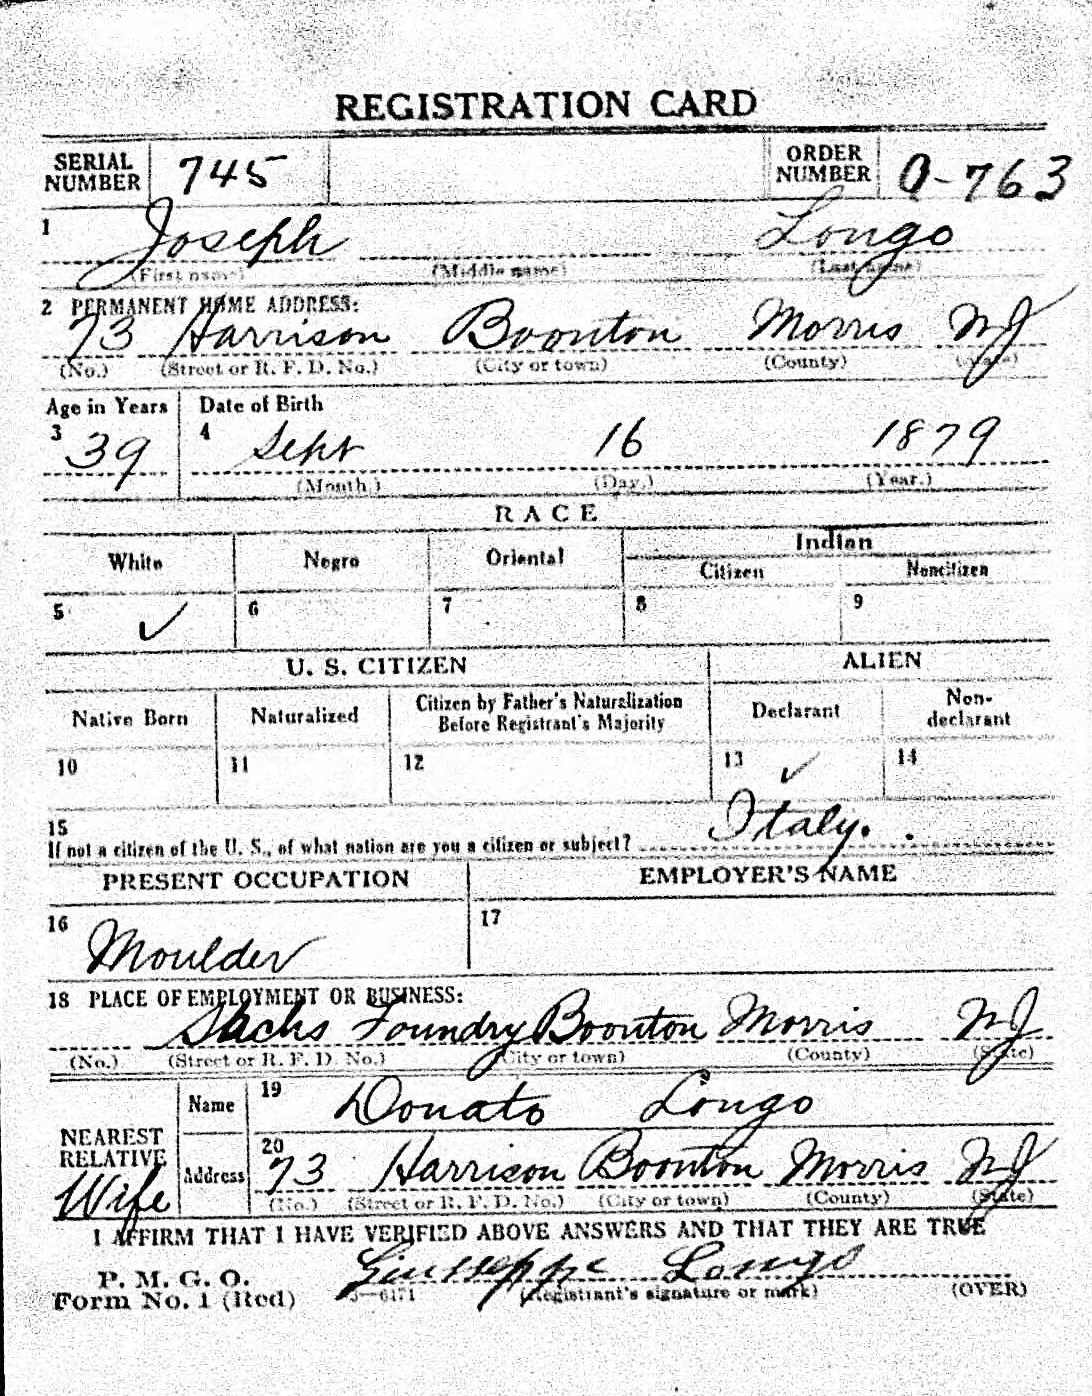 REGISTRATION CARD
SERIAL NUMBER 745 ORDER NUMBER A-763
1 Joseph Longo
(First name) (Middle name) (Last name)
2 PERMANENT HOME ADDRESS:
73 Harrison Boonton Morris NJ
(No.) (Street or R. F. D. No.) (City or town) (County) (State)
Age in Years Date of Birth
3 39 4 Sept 16 1879
(Month.) (Day.) (Year.)
RACE
White Negro Oriental Indian
Citizen Noncitizen
5 ✓ 6 7 8 9
U. S. CITIZEN ALIEN
Native Born Naturalized Citizen by Father's Naturalization Before Registrant's Majority Declarant Non-declarant
10 11 12 13 ✓ 14
15 If not a citizen of the U. S., of what nation are you a citizen or subject? Italy.
PRESENT OCCUPATION EMPLOYER'S NAME
16 Moulder 17
18 PLACE OF EMPLOYMENT OR BUSINESS:
Sachs Foundry Boonton Morris NJ
(No.) (Street or R. F. D. No.) (City or town) (County) (State)
NEAREST RELATIVE Wife
Name 19 Donato Longo
Address 20 73 Harrison Boonton Morris NJ
(No.) (Street or R. F. D. No.) (City or town) (County) (State)
I AFFIRM THAT I HAVE VERIFIED ABOVE ANSWERS AND THAT THEY ARE TRUE
P. M. G. O.
Form No. 1 (Red) 3—6171 Giuseppe Longo
(Registrant's signature or mark) (OVER)